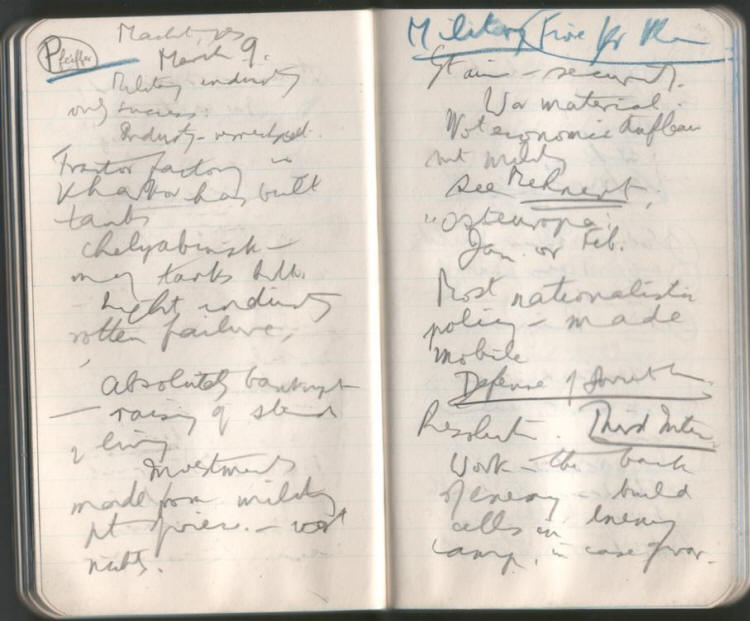 Pfeiffer
March 9.
Military industry
only success.
Industry -
Tractor factory in
Kharkov has built
tanks
Chelyabinsk -
many tanks
Light industry
rotten failure,
Absolutely bankrupt
- raising of stand
of living
Investments
made from military
pt of view. -
Military Five Yr Plan
Stalin - security.
War material.
Not economic
but military
See Mehnert,
"Osteuropa"
Jan. or Feb.
Most nationalistic
policy - made
mobile
Defense of Soviet
Resolut. Third Inter.
Work - the back
of enemy - build
cells in enemy
camp, in case of war.